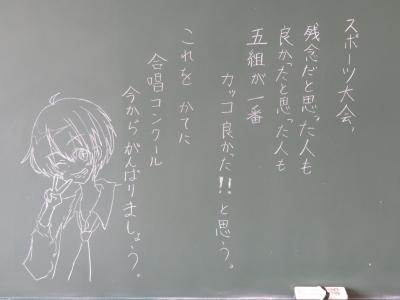 スポーツ大会、
残念だと思った人も
良かったと思った人も
五組が一番
カッコ良かった!!と思う。
これを かてに
合唱コンクール
今から がんばりましょう。